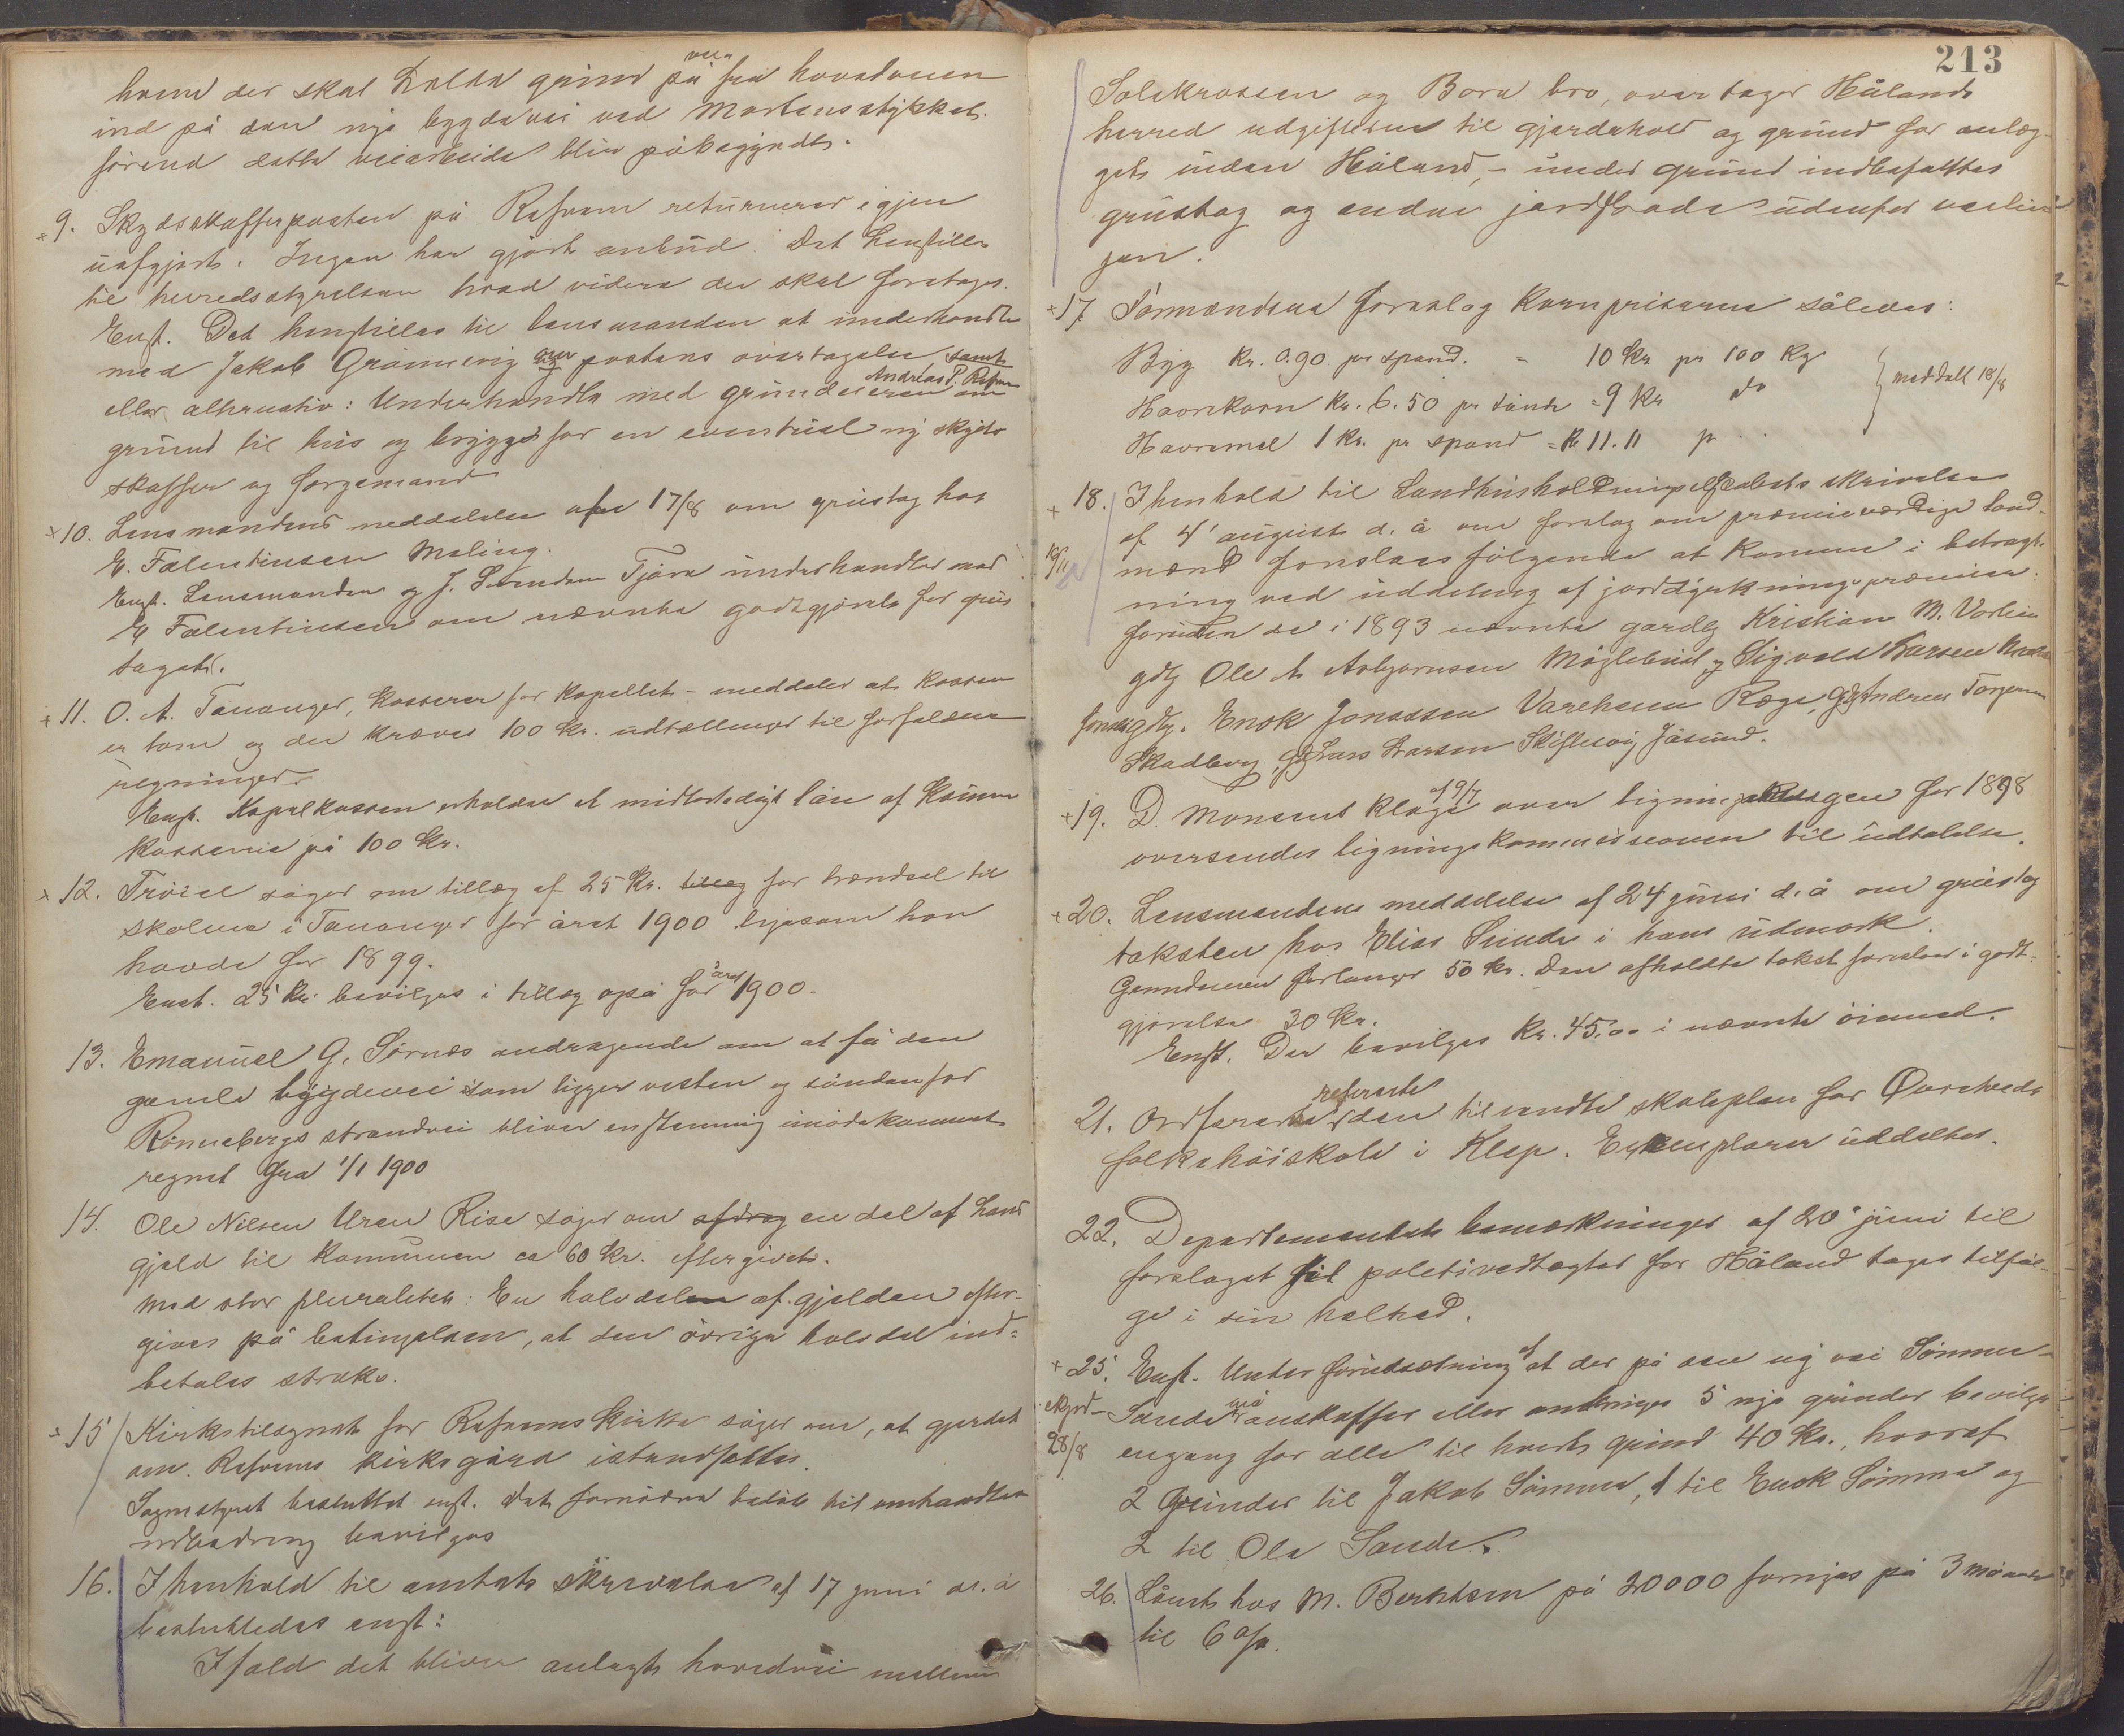 hvem der skal holde grind på veien fra hovedveien
ind på den nye bygdevei ved Mortensstykket
förend dette veiarbeide blir påbegyndt.
9. Skydsskafferposten på Refsnes returneres igjen
uafgjort. Ingen har gjort anbud. Det henstilles
til herredsstyrelsen hvad videre der skal foretages.
Enst. Det henstilles til lensmanden at underhandle
med Jakob Grannesvig om postens overtagelse samt
eller alternativ: Underhandle med grundeieren Andreas P. Refsnes om
grund til hus og brygge for en eventuel ny skyds
skaffer og færgemand
10. Lensmandens meddelelse af 17/8 om grustag hos
E. Falentinsen Meling.
Enst. Lensmanden og J. Tjora underhandler med
E Falentinsen om nævnte godtgjörelse for grus
taget.
11. O. A. Tananger, kasserer for kapellet - meddeler at kassen
er tom og der kræves 100 kr. udtællinger til forfaldne
regninger.
Enst. Kapelkassen erholder et midlertidigt lån af Komune
kassenie på 100 Kr.
12. söger om tillæg af 25 Kr. tillæg for brændsel til
skolerne i Tananger for året 1900 ligesom han
havde for 1899.
Enst. 25 Kr. bevilges i tillæg også for året 1900.
13. Emanuel G. Sörnes andragende om at få den
gamle bygdevei som ligger vesten og söndenfor
Rönnebergs strandvei bliver enstemmig imödekommet
regnet fra 1/1 1900
14. Ole Nilsen Uren Rise söger om afdrag en del af hans
gjeld til kommunen ca 60 Kr. eftergivet.
Med stor pluralitet: En halvdelen af gjelden efter-
gives på betingelsen, at den övrige halvdel ind-
betales straks.
15 Kirketilsynet for Refsnes Kirke söger om, at gjerdet
om Refsnes kirkegård istandsættes.
Sognestyret besluttet enst. Det fornödne belöb til omhandlede
udbedring bevilges
16. I henhold til amtets skrivelse af 17 juni d. å
besluttedes enst:
Ifald det bliver anlagt hovedvei mellem
213
Solekrossen og Bore bro, overtager Håland
herred udgifterne til gjerdehold og grund for anlæg-
get inden Håland, - under grund indbefattes
grustag og anden jordflade udenfor veilin-
jen.
17. Formændene foreslog Kornpriserne således:
Byg Kr. 0.90. pr spand. = 10 kr pr 100 Kg
Havrekorn Kr. 6.50 pr tönde = 9 Kr do
Havremel 1 Kr. pr spand = Kr 11.11 pr
meddelt 18/8
18. I henhold til Landhusholdningselskabets skrivelse
af 4' august d. å om forslag om præmieværdige land-
mænd foreslaes fölgende at komme i betragt-
ning ved uddeling af jorddyrkningspræmier:
foruden de i 1893 nævnte gardbr Kristian M.
gdbr Ole A Asbjörnsen Myglebust og Sigvald Larsen
gdbr. Enok Jonassen Varehaug Ræge, gdbr Andreas Torgersen
Skadberg, gdbr Lars Larsen Skiftesvig Jåsund.
19. D. Monsens klage af 19/7 over ligningsklagen for 1898
oversendes ligningskommissionen til udtalelse.
20. Lensmandens meddelelse af 24 juni d. å om grustag
taksten hos Elias Sunde i hans udmark.
Grundeieren forlanger 50 kr. Den afholdte takst foreslaar i godt-
gjörelse 30 Kr.
Enst. Der bevilges Kr. 45.00 i nævnte öiemed.
21. Ordföreren refererte den tilsendte skoleplan for Qverheds
folkehöiskole i Klep. Exemplarer uddeltes.
22. Departementets bemærkninger af 20' juni til
forslaget til politivedtægter for Håland tages tilföl-
ge i sin helhed.
25. Enst. Under forudsætning af at der på den ny vei Sömme-
Sande må anskaffes eller anbringes 5 nye grinder bevilges
engang for alle til hvert grind 40 Kr., hvoraf
2 Grinder til Jakob Sömme, 1 til Enok Sömme og
2 til Ola Sande.
26. Lånet hos M. Berntsen på 20000 fornyes på 3 måneder
til 6 o/o.